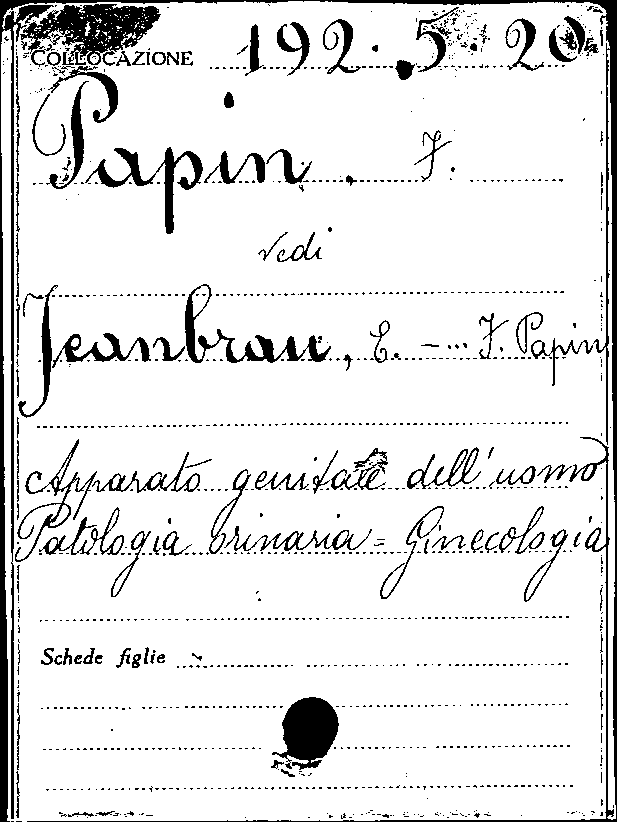 COLLOCAZIONE 192. 5. 20
Papin, F.
vedi
Jeanbrau, E. - ... F. Papin
Apparato genitale dell'uomo
Patologia orinaria = Ginecologia
Schede figlie